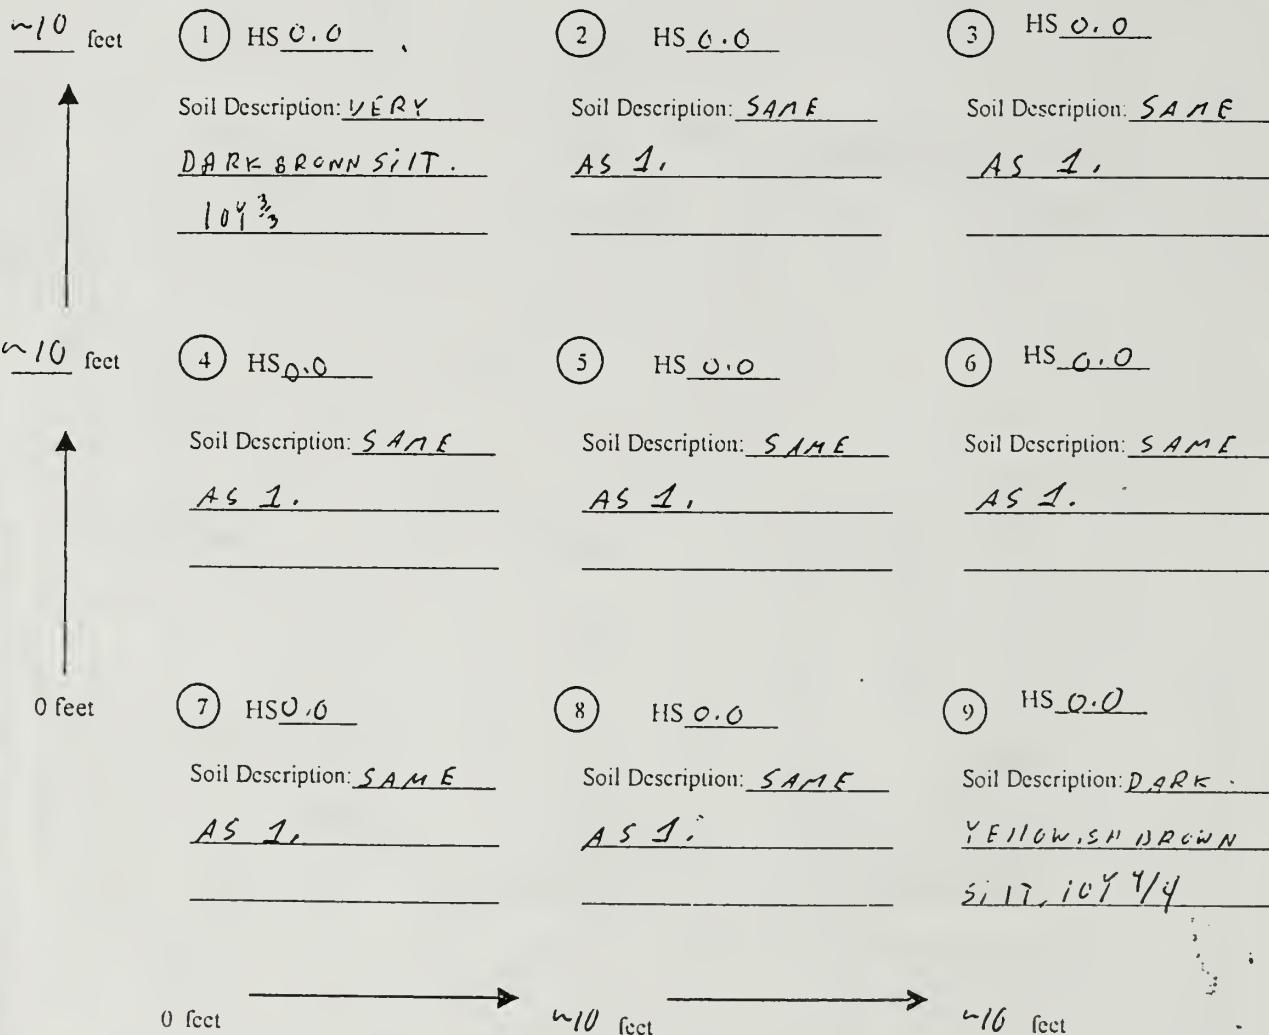 ~10 feet
1 HS 0.0
2 HS 0.0
3 HS 0.0
Soil Description: VERY
DARK BROWN SilT.
10Y 3/3
Soil Description: SAME
AS 1.
Soil Description: SAME
AS 1.
~10 feet
4 HS 0.0
5 HS 0.0
6 HS 0.0
Soil Description: SAME
AS 1.
Soil Description: SAME
AS 1.
Soil Description: SAME
AS 1.
0 feet
7 HS 0.0
8 HS 0.0
9 HS 0.0
Soil Description: SAME
AS 1.
Soil Description: SAME
AS 1.
Soil Description: DARK
YEllOWiSH BROWN
SilT, 10Y 4/4
0 feet
~10 feet
~10 feet